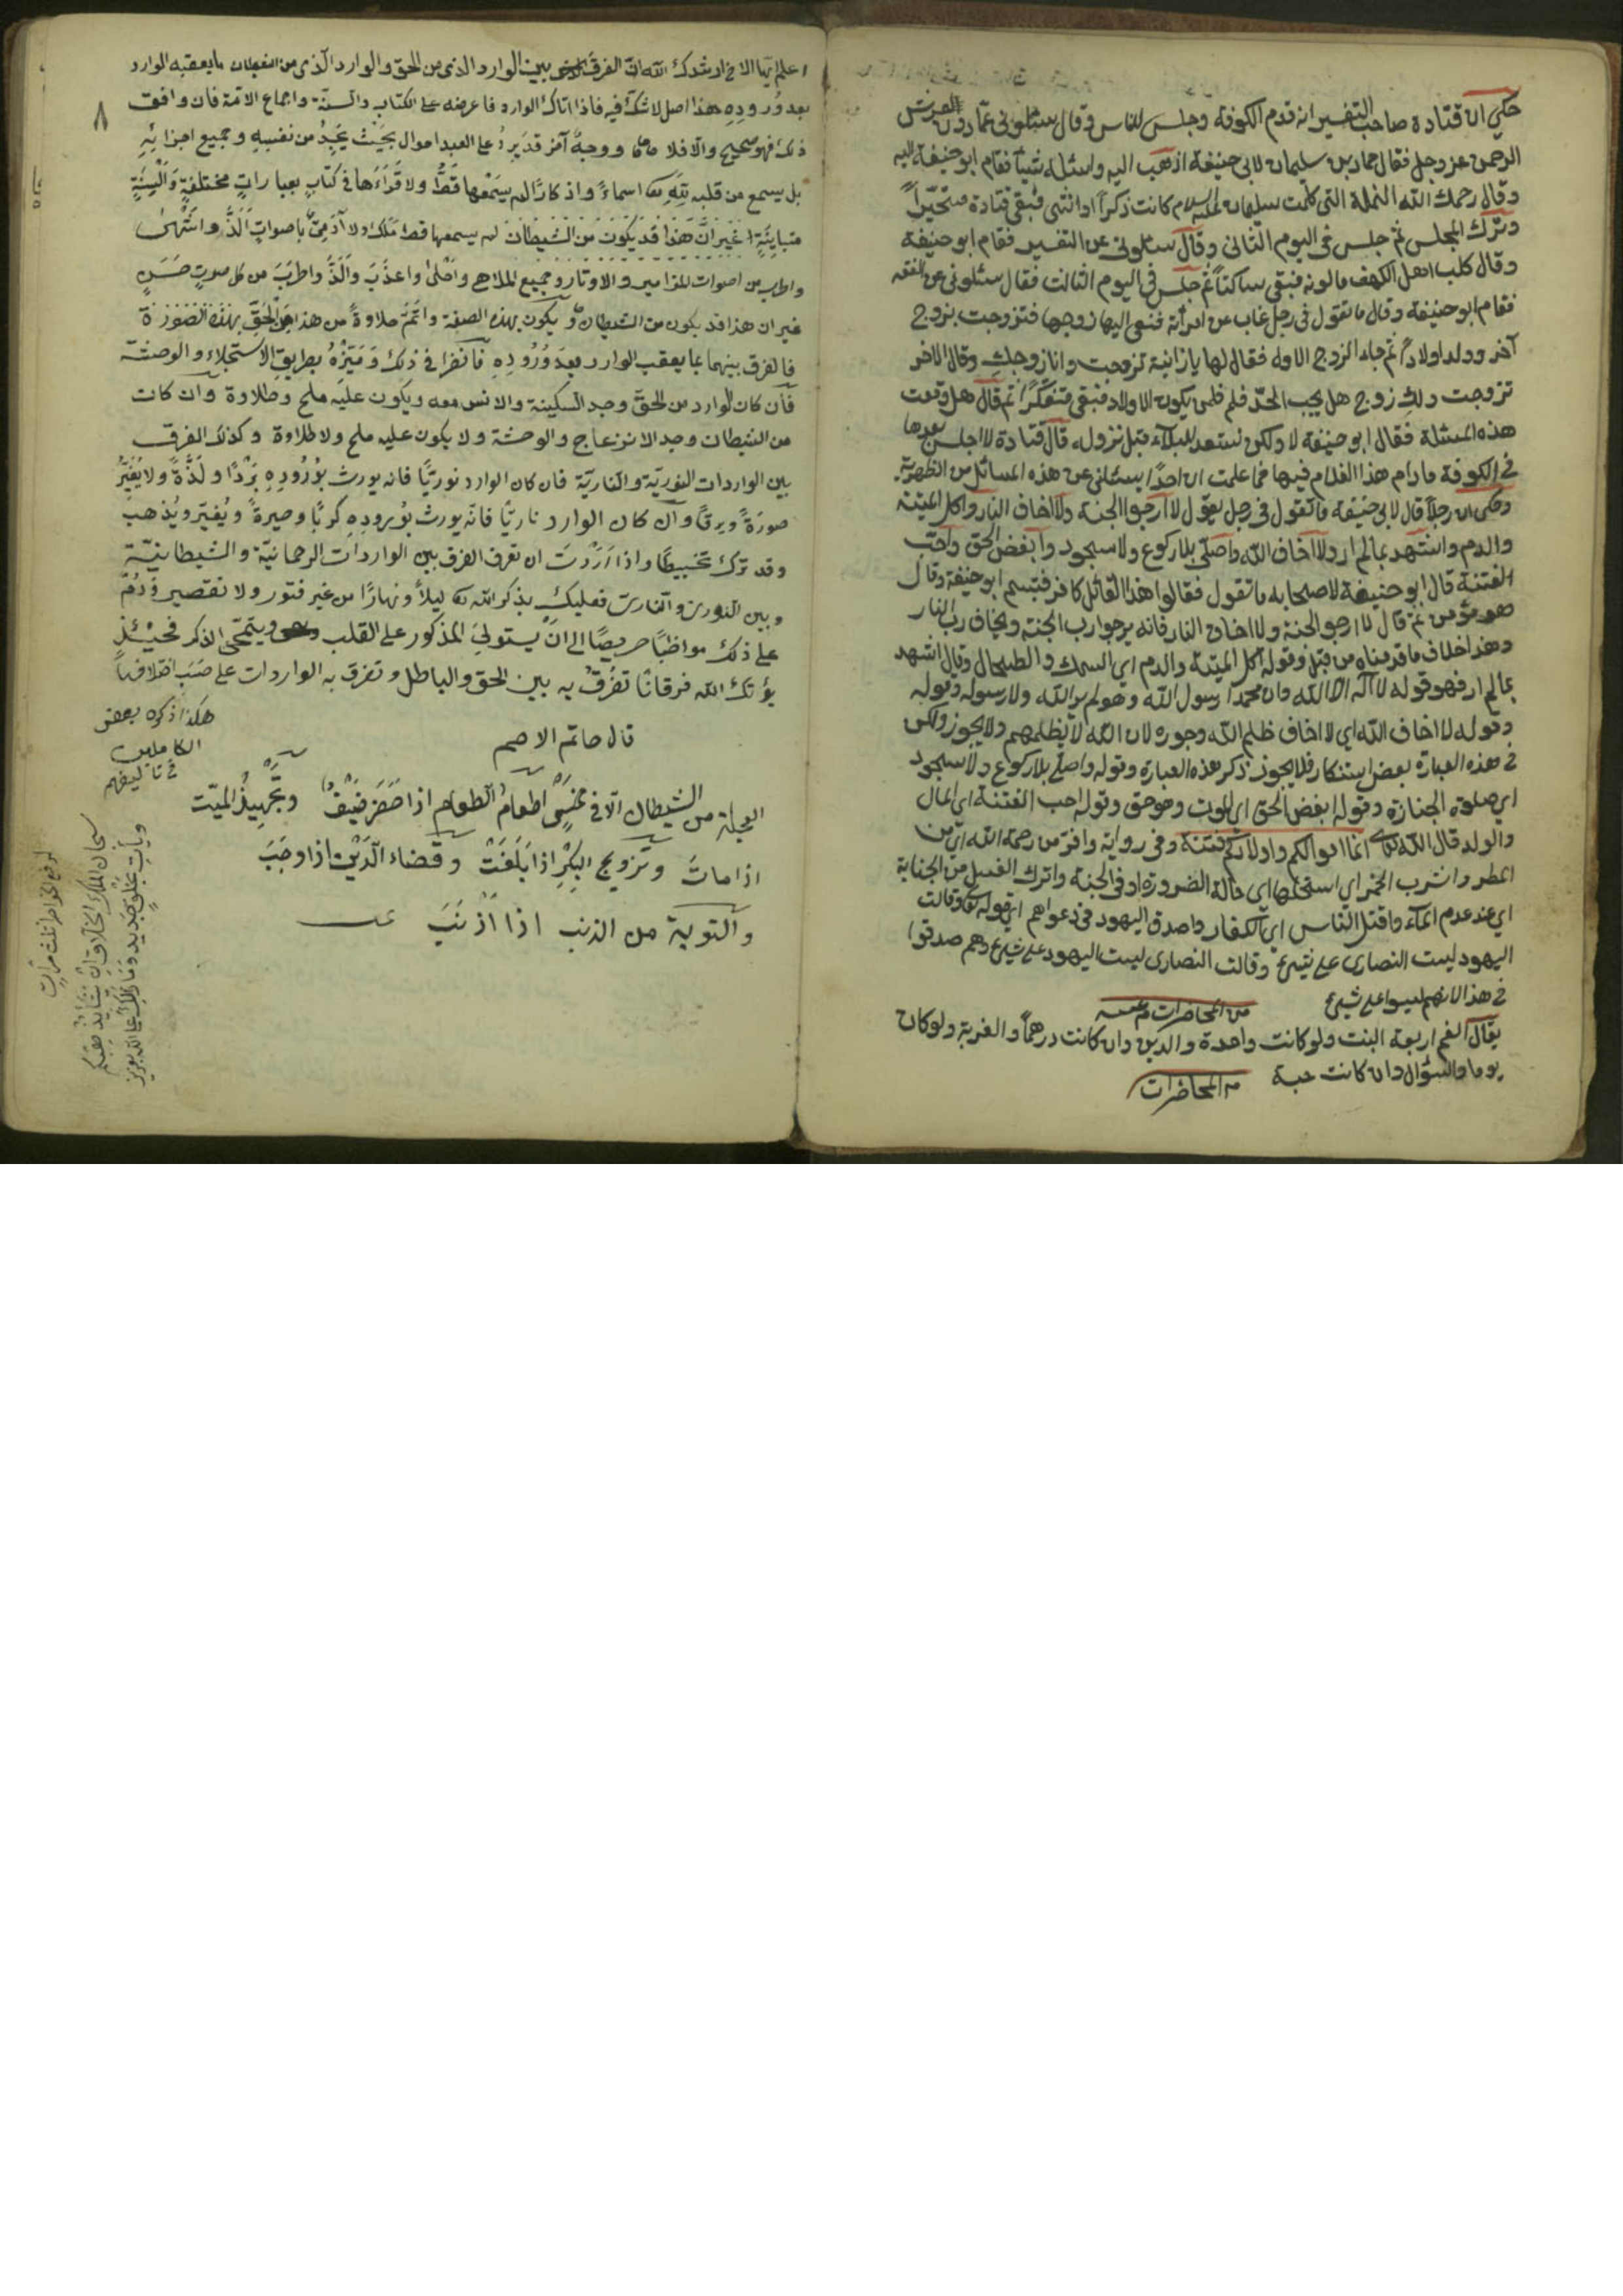 حكي ان قتادة صاحب التفسير انه قدم الكوفة وجلس للناس وقال سئلوني عمّا دون العرش
الرحمن عز وجل فقال حماد بن سليمان لابي حنيفة اذهب اليه واسئله شيئا فقام ابو حنيفة اليه
وقال رحمك الله النملة التي كلمت سليمان عليه السلام كانت ذكراً او انثى فبقي قتادة متحيّراً
وترك المجلس ثم جلس في اليوم الثاني وقال سئلوني عن التفسير فقام ابو حنيفة
وقال كلب اهل الكهف ما لونه فبقي ساكتاً ثم جلس في اليوم الثالث فقال سئلوني عن الفقه
فقام ابو حنيفة وقال ما تقول في رجل غاب عن امرأته فنعي اليها زوجها فتزوجت بزوج
آخر وولد اولاداً ثم جاء الزوج الاول فقال لها يا زانية تزوجت وانا زوجك وقال الاخر
تزوجت ولك زوج هل يجب الحدّ فلم فلمن يكون الاولاد فبقي متفكّراً ثم قال هل وقعت
هذه المسئلة فقال ابو حنيفة لا ولكن نستعد للبلاء قبل نزوله قال قتادة لا اجلس بعدها
في الكوفة ما دام هذا الغلام فيها فما علمت ان احداً يسئلني عن هذه المسائل من
وحكى ان رجلاً قال لابي حنيفة ما تقول في رجل يقول لا ارجو الجنة ولا اخاف النار واكل الميتة
والدم واشهد بما لم ار ولا اخاف الله واصلّي بلا ركوع ولا سجود وابغض الحق واحبّ
الفتنة قال ابو حنيفة لاصحابه ما تقول فقالوا هذا القائل كافر فتبسم ابو حنيفة وقال
هو مؤمن ثم قال لا ارجو الجنة ولا اخاف النار فانه يرجو رب الجنة ويخاف رب النار
وهذا خلاف ما قدمناه من قبل وقوله آكل الميتة والدم اي السمك والطحال وقال اشهد
بما لم ار فهو قوله لا اله الا الله وان محمدا رسول الله وهو لم ير الله ولا رسوله وقوله
وقوله لا اخاف الله اي لا اخاف ظلم الله وجوره لان الله لا يظلمهم ولا يجوز ولكن
في هذه العبارة بعض استنكار فلا يجوز ذكر هذه العبارة وقوله واصلّي بلا ركوع ولا سجود
اي صلوة الجنازة وقوله ابغض الحق اي الموت وهو حق وقوله احب الفتنة اي المال
والولد قال الله تعالى انما اموالكم واولادكم فتنة وفي رواية وافرّ من رحمة الله اي من
المطر واشرب الخمر اي استحلها اي حالة الضرورة او في الجنة واترك الغسل من الجنابة
اي عند عدم الماء واقتل الناس اي الكفار واصدق اليهود في دعواهم اي قوله تعالى وقالت
اليهود ليست النصارى على شيئ وقالت النصارى ليست اليهود على شيئ وهم صدقوا
في هذا لانهم ليسوا على شيئ من المحاضرات
يقال الغم اربعة البنت ولو كانت واحدة والدين وان كانت درهماً والغربة ولو كان
يوما والسؤال وان كانت حبة من المحاضرات
٨
اعلم ايّها الاخ ارشدك الله انّ الفرق بين الوارد الذي من الحقّ والوارد الّذي من الشيطان ما يعقبه الوارد
بعد وُروده هذا اصل لا شكّ فيه فاذا اتاك الوارد فاعرضه على الكتاب والسنّة واجماع الامّة فان وافق
ذلك فهو صحيح والّا فلا ووجهٌ آخر قد يَرِدُ على العبد احوال بحيث يَجِدُ من نفسه وجميع اجزائه
بل يسمع من قلبه لله تعالى اسماءً واذكارًا لم يسمعها قطّ ولا قرأءها في كتابٍ بعباراتٍ مختلفةٍ وألسِنَةٍ
متباينةٍ غير انّ هذا قد يكون من الشيطان لم يسمعها قط مَلَك ولا آدميّ باصواتٍ ألذّ واشهى
واطرب من اصوات المزامير والاوتار وجميع الملاهي واحلى واعذب وألذّ واطرب من كل صوتٍ حسنٍ
غير ان هذا قد يكون من الشيطان ويكون بهذه الصفة واتمّ حلاوةً من هذا من الحقّ بهذه الصورة
فالفرق بينهما بما يعقب الوارد بعد وُرُودِهِ فانظر في ذلك ومَيّزْهُ بطريق الاستجلاء والوحشة
فان كان الوارد من الحقّ وجد السكينة والانس معه ويكون عليه ملح وطلاوة وان كانت
من الشيطان وجد الانزعاج والوحشة ولا يكون عليه ملح ولا طلاوة وكذلك الفرق
بين الواردات النوريّة والناريّة فان كان الوارد نوريًّا فانه يورث بوُرُودِهِ بَرْدًا ولذّةً ولا يُغَيِّرُ
صورةً وبرقًا وان كان الوارد ناريًّا فانّه يورث بوُرودِهِ كربًا وحيرةً ويُغيّر ويُذهب
وقد ترك تخبيطًا واذا أرَدْتَ ان تعرف الفرق بين الواردات الرحمانيّة والشيطانيّة
وبين النوري والناري فعليك بذكر الله تعالى ليلًا ونهارًا من غير فتور ولا تقصير وَدُمْ
على ذلك مواظبًا حريصًا الى ان يستولي المذكور على القلب ويتمحّى الذكر فحينئذٍ
يؤتك الله فرقانًا تفرُق به بين الحق والباطل وتفرق به الواردات على حسب اختلافها
هكذا ذكره بعض
الكاملين
في تأليفهم
قال حاتم الاصم
العجلة من الشيطان الّا في خمسٍ اطعامُ الطعام اذا حَضَرَ ضَيْفٌ وتجهيزُ الميّت
اذا ماتَ وتزويج البِكْرِ اذا بَلَغَتْ وقضاء الدَّيْن اذا وجَبَ
والتوبة من الذنب اذا أذْنَبَ
لرفع الخواطر ثلث مرات
سبحان الملك الخلّاق ان يشأ يذهبكم
ويأت بخلق جديد وما ذلك على الله بعزيز